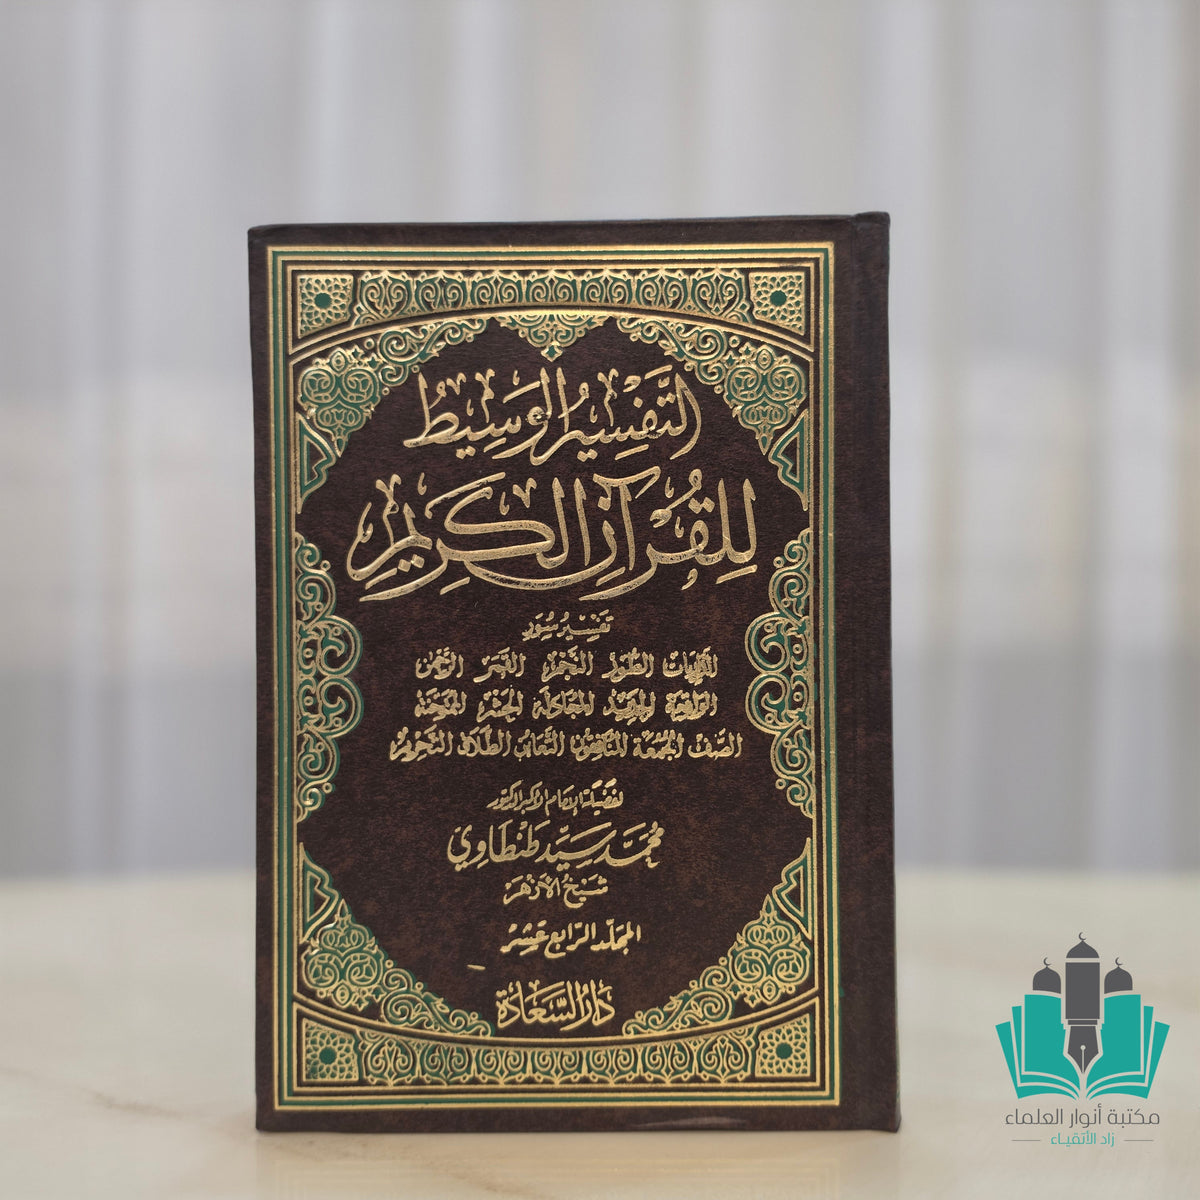 التَّفْسِيرُ الوَسِيطُ
لِلقُرآنِ الكَرِيمِ
تفسير سُوَر
الذاريات الطور النجم القمر الرحمن
الواقعة الحديد المجادلة الحشر الممتحنة
الصف الجمعة المنافقون التغابن الطلاق التحريم
لفضيلة الإمام الأكبر الدكتور
محمد سيد طنطاوي
شيخ الأزهر
المجلد الرابع عشر
دار السعادة
مكتبة أنوار العلماء
زاد الأتقياء